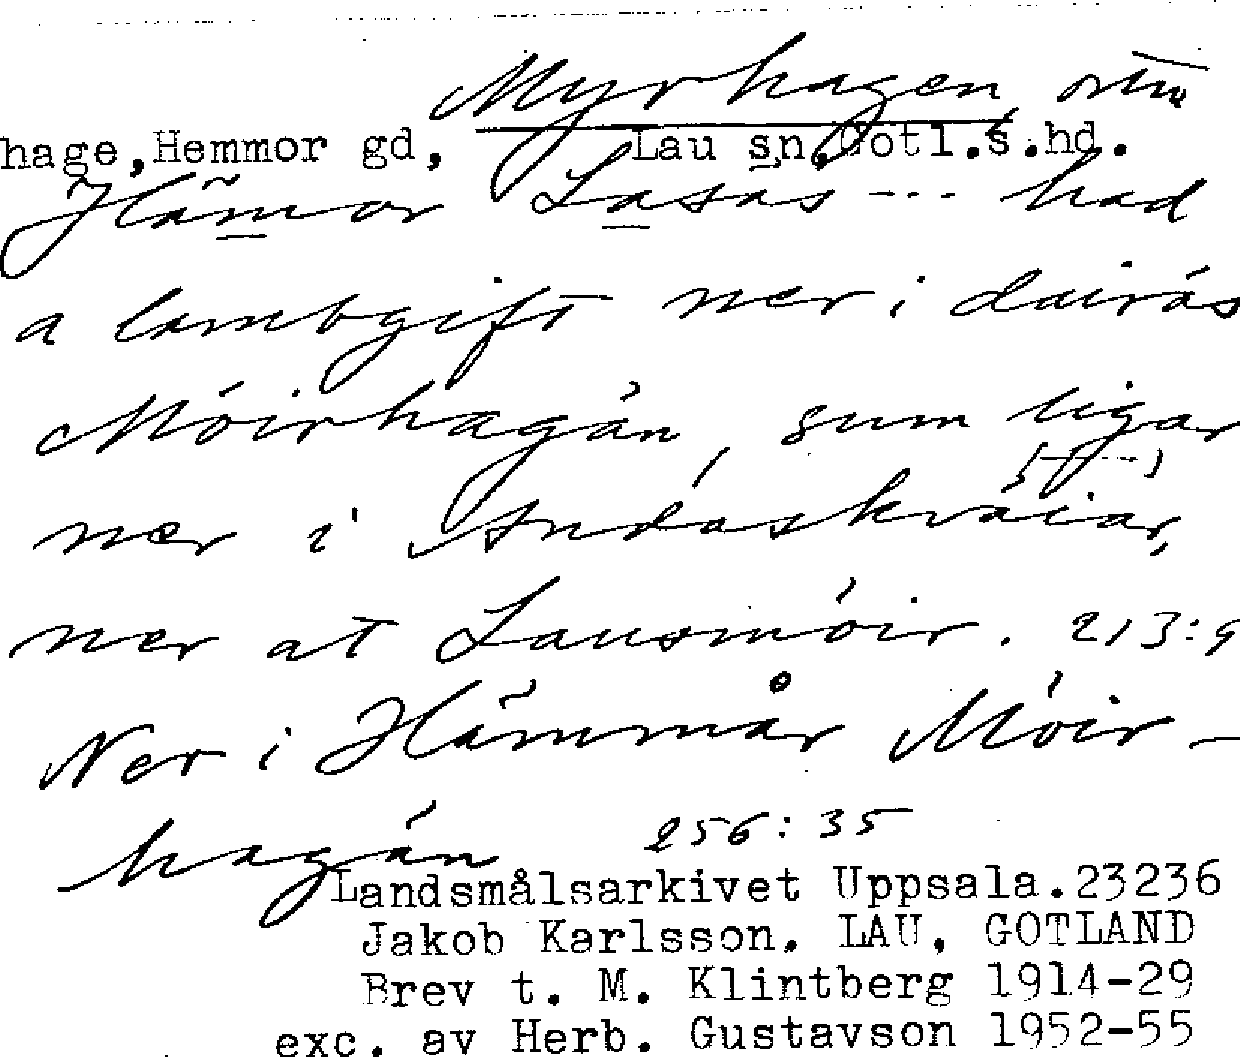 Myrhagen
hage, Hemmor gd, Lau sn, Gotl.s.hd.
Hãmor Lasas --- had
a lambgift ner i dairás
Móirhagán, sum ligar
ner i Andáskváiár,
ner at Lausmóir. 213:9
Ner i Hãmmår Móir-
hagán 256:35
Landsmålsarkivet Uppsala.23236
Jakob Karlsson. LAU, GOTLAND
Brev t. M. Klintberg 1914-29
exc. av Herb. Gustavson 1952-55